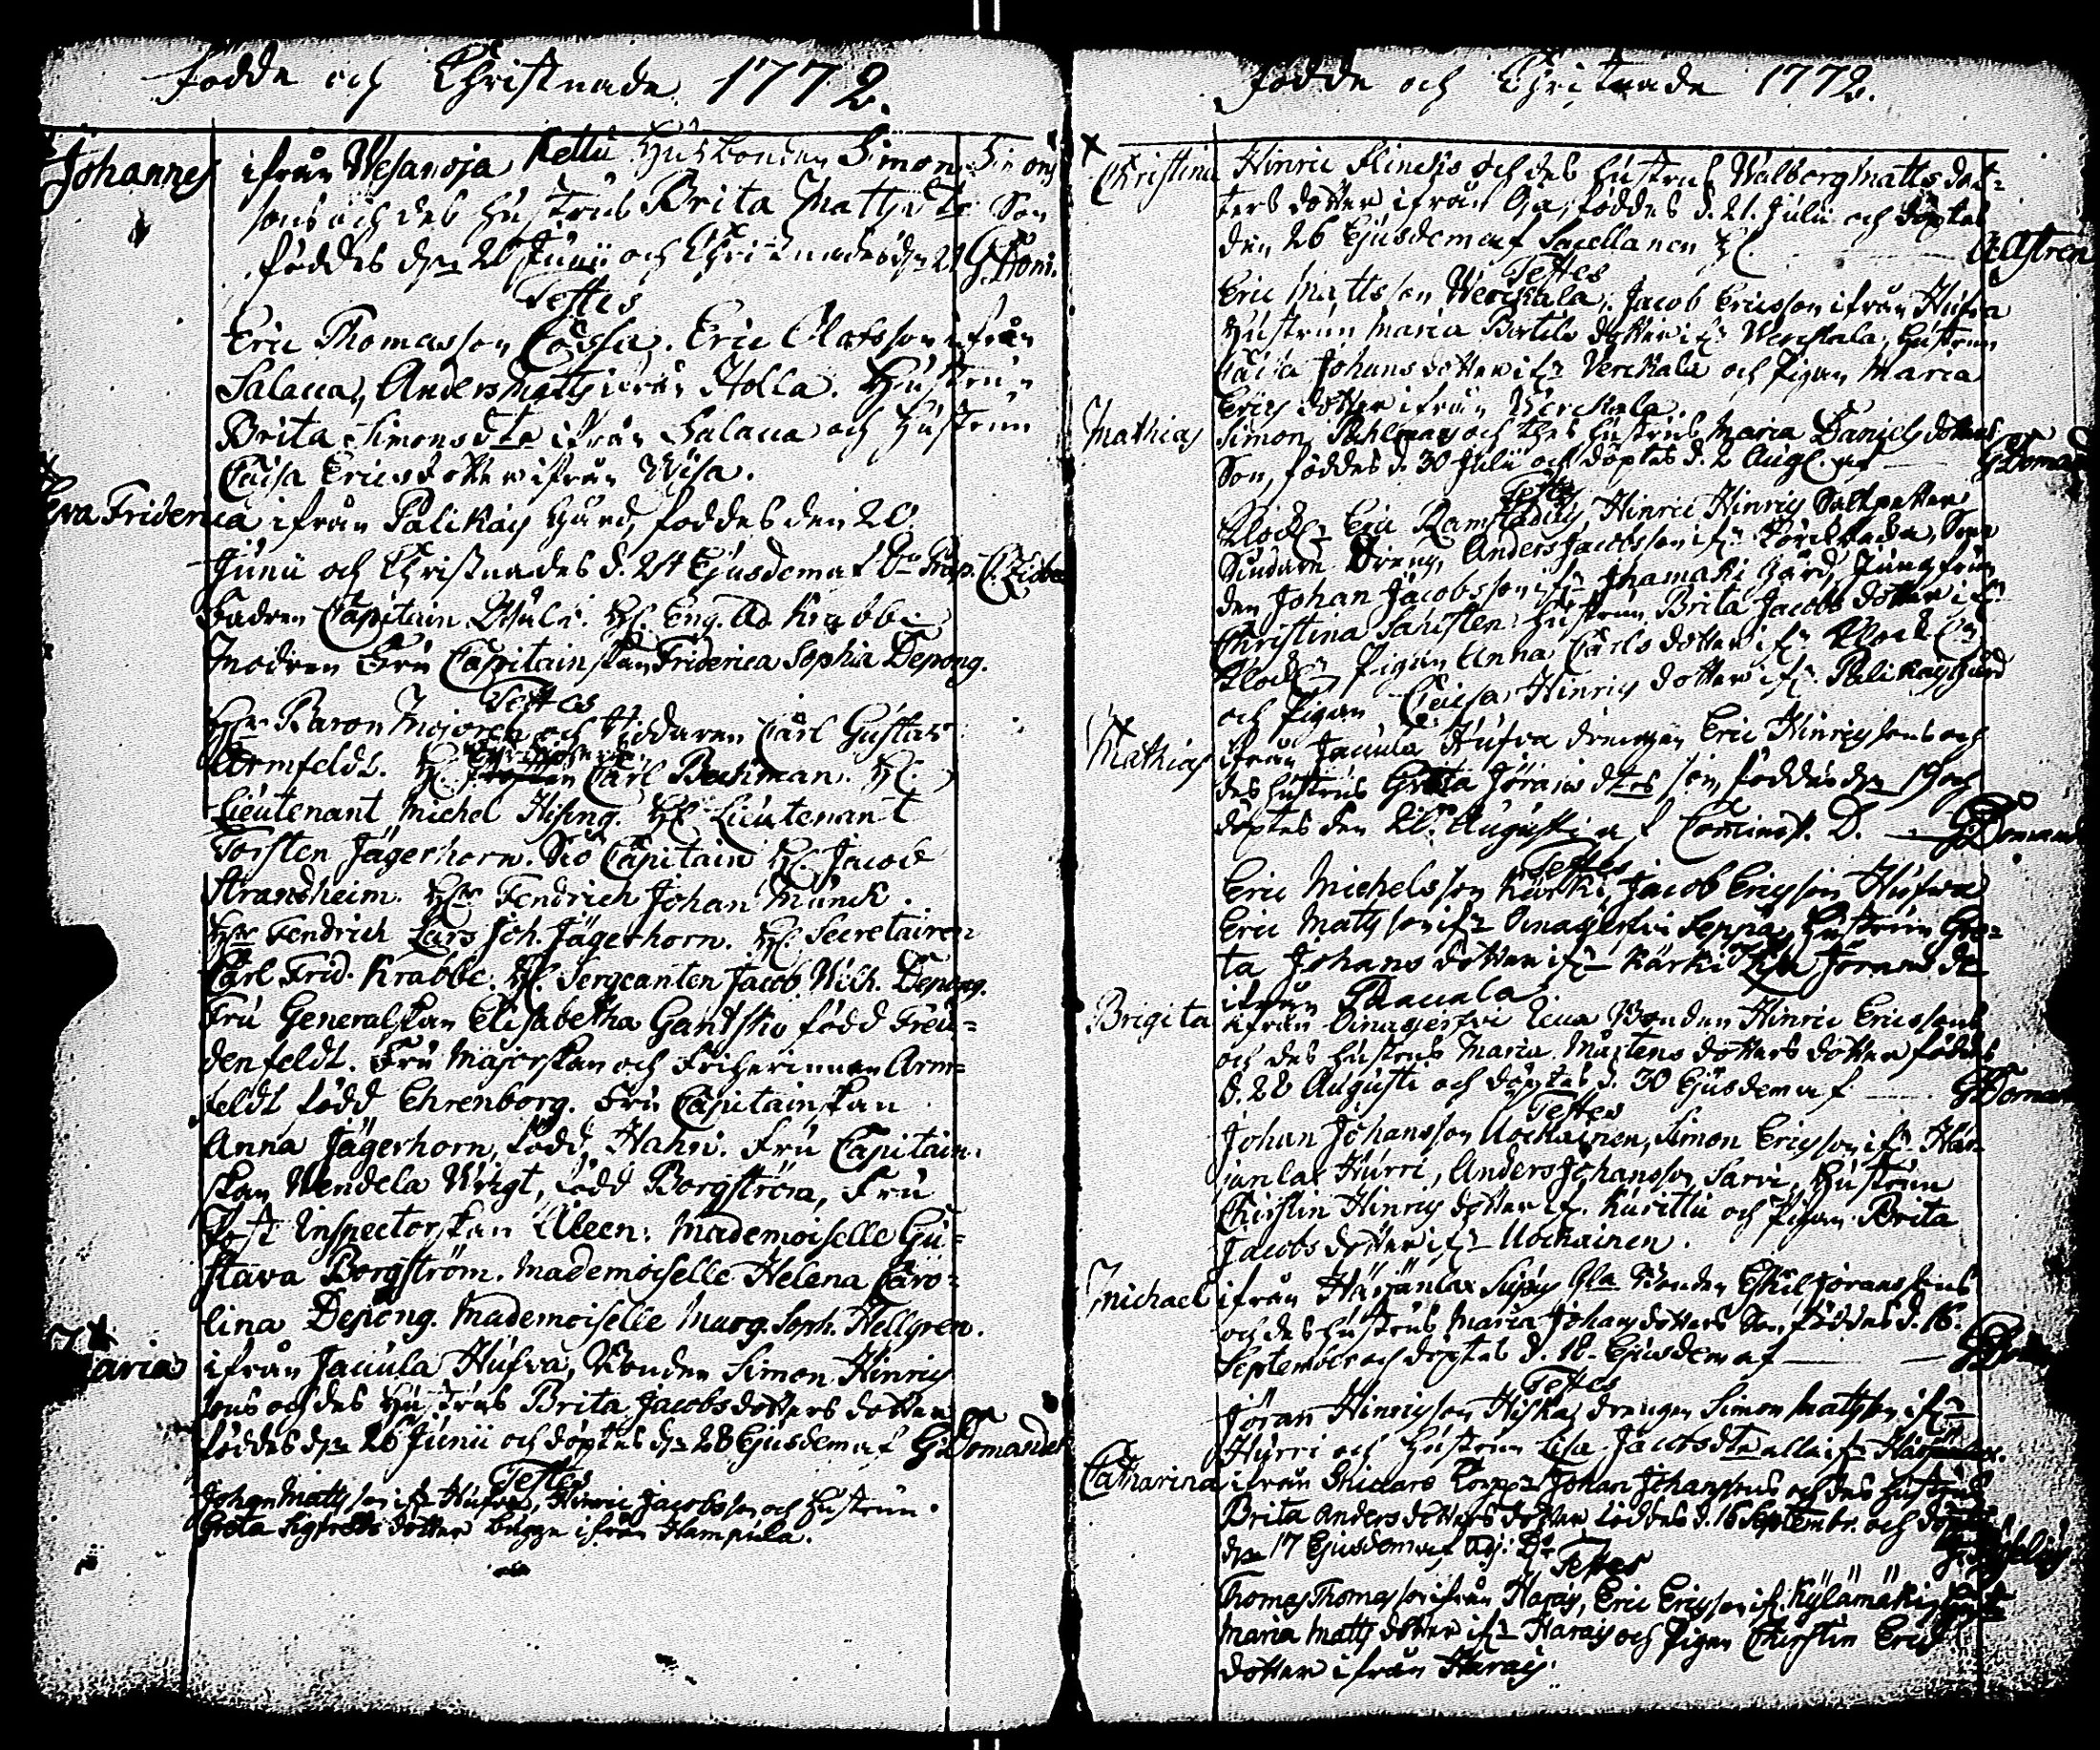 Födde och Christnade 1772.
Johannes ifrån Wesanoja Kettu Husbonden Simon Simons
sons och des Hustrus Brita Matts Dr Son
föddes dn 20 Junii och Christnades dn 21 G. Dom.
Testes
Eric Thomasson Cåissa. Eric Olofsson ifrån
Salacca, Anders Matts ifrån Holla. Hustrun
Brita Simonsdtr ifrån Salacca och Hustrun
Caisa Ericsdotter ifrån Wisa.
Eva Friderica ifrån Palikais Gård, föddes den 20.
Junii och Christnades d. 24 Ejusdem af Dn Prap.
Fadren Capitain H. Eng. Ad. Krabbe
Modren Fru Capitainskan Friderica Sophia Depong.
Testes
Hr Baron Majoren och Riddaren Carl Gustav
Armfeldt. H. Carl Beckman. H.
Lieutenant Michel Hising. H. Lieutenant
Torsten Jägerhorn. Siö Capitain H. Jacob
Strandheim. Hr Fendrich Johan Munck.
Hr Fendrich Lars Joh. Jägerhorn. H. Secretairen
Carl Frid. Krabbe. H. Sergeanten Jacob Wilh. Depong.
Fru Generalskan Elisabetha Gantsko född Freu=
denfeldt. Fru Majorskan och Friherinnan Arm=
feldt född Ehrenborg. Fru Capitainskan
Anna Jägerhorn, född Hahn. Fru Capitain=
skan Wendela Wrigt, född Borgström, Fru
Post Inspectorskan Aleen. Mademoiselle Gu=
stava Borgström. Mademoiselle Helena Caro=
lina Depong. Mademoiselle Marg. Soph. Hellgren.
Maria ifrån Jacuula Hufva, Bonden Simon Hinrics
sons och des Hustrus Brita Jacobsdotters dotter
föddes dn 26 Junii och döptes dn 28 Ejusdem af G Domander
Testes
Johan Mattsson ifn Hufva, Hinric Jacobsson och Hustrun
Greta Sigfredsdotter Bugge ifrån Hampula.
Födde och Christnade 1772.
Christina Hinric Flincks och des Hustrus Walborg Matts dot=
ters dotter ifrån Oja, föddes d. 21. Julii och döptes
den 26 Ejusdem af Sacellanen H. A. Alftren
Testes
Eric Mattsson Werckala. Jacob Ericsson ifrån Hufva
Hustrun Maria Bertils dotter ifn Werckala, Hustrun
Caisa Johansdotter ifn Verckala och Pigan Maria
Erics dotter ifrån Werckala.
Mathias Simon Pahlmans och des Hustrus Maria Daniels dotters
Son, föddes d. 30 Julii och döptes d. 2 Aug. af G Domander
Testes
Klock. Eric Ramstadius, Hinric Hinrics Saltpetter
Siudare Dreng, Anders Jacobsson ifn
den Johan Jacobsson ifn Jhamäki Gård, Jungfrun
Christina Sahlsten. Hustrun Brita Jacobs dotter ifn
Klock. Pigan Anna Carls dotter ifn
och Pigan Caisa Hinrics dotter ifn Palikais Gård
Mathias ifrån Jacuula Hufva drengen Eric Hinricssons och
des Hustrus Greta Jörans dtrs son, föddes dn 19 och
döptes den 20. Augusti af Comminist. D. G Domander
Testes
Eric Michelsson Kärki, Jacob Ericsson Hufwa
Eric Mattsson ifn Oinasjerfvi Seppä, Hustrun Gre=
ta Johans dotter ifn Kärki Lisa Jörans dr
ifrån Paacala.
Brigita ifrån Oinasjerfvi Bonden Hinric Ericssons
och des Hustrus Maria Mårtens dotters dotter föddes
d. 28 Augusti och döptes d. 30 Ejusdem af G Domander
Testes
Johan Johansson Uockainen, Simon Ericsson ifn Här=
jänlax Hurri, Anders Johansson Sarvi, Hustrun
Christin Hinrics dotter ifn Kurittu och Pigan Brita
Jacobs dotter ifn Uockainen.
Michael ifrån Härjänlax Bonden Eskil Jöranssons
och des Hustrus Maria Johans dotters Son föddes d. 16.
September och döptes d. 18. Ejusdem af
Testes
Jöran Hinricsson Hiska, drengen Simon Mattsson ifn
Hurri och Hustrun Lisa Jacobs dtr alla ifn
Catharina ifrån Johan Johanssons och des Hustrus
Brita Anders dotters dotter föddes d. 16 Septembr. och
dn 17 Ejusdem af Adj:
Testes
Thomas Thomasson ifrån Harais, Eric Ericsson ifn Kylämäki,
Maria Matts dotter ifn Harais och Pigan Christin Erics
dotter ifrån Harais.